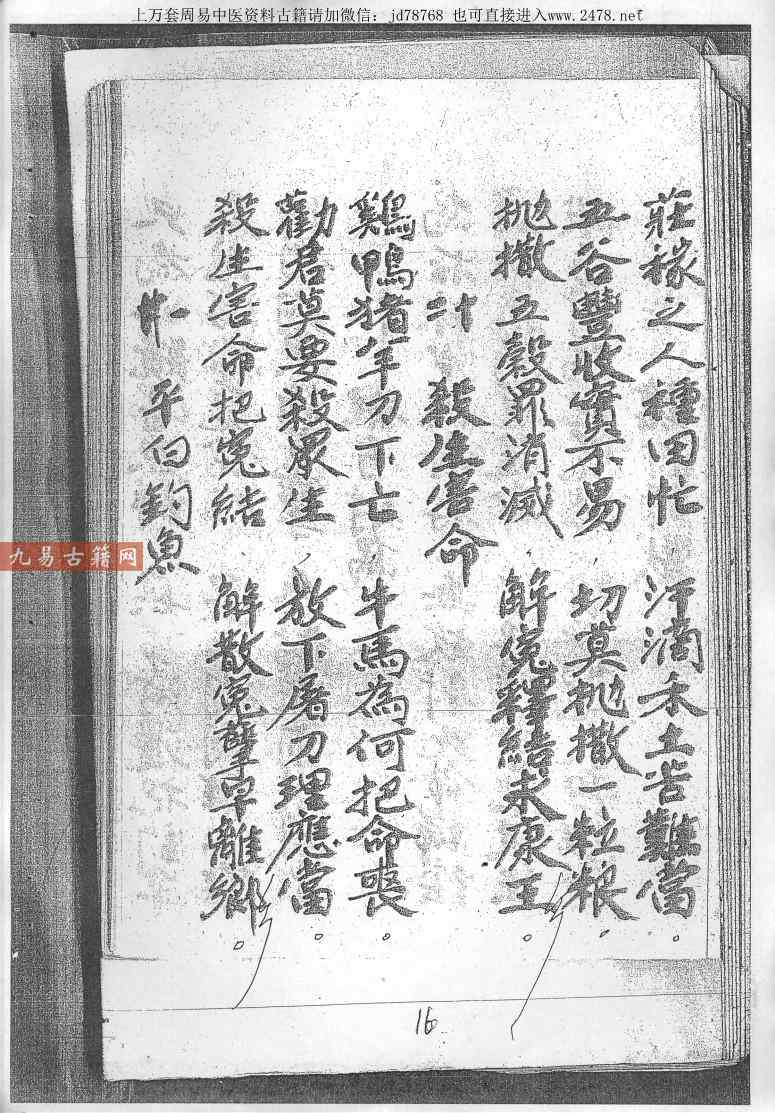 上万套周易中医资料古籍请加微信：jd78768 也可直接进入www.2478.net
莊稼之人種田忙 汗滴禾土苦難當。
五谷豐收實不易，切莫抛撒一粒粮。
抛撒五穀罪消滅，解寃釋結求康王。
二十 殺生害命
鷄鴨猪羊刀下亡，牛馬為何把命喪。
勸君莫要殺眾生，放下屠刀理應當。
殺生害命把寃結 解散寃孽早離鄉。
廿一 平白釣魚
九易古籍网
16